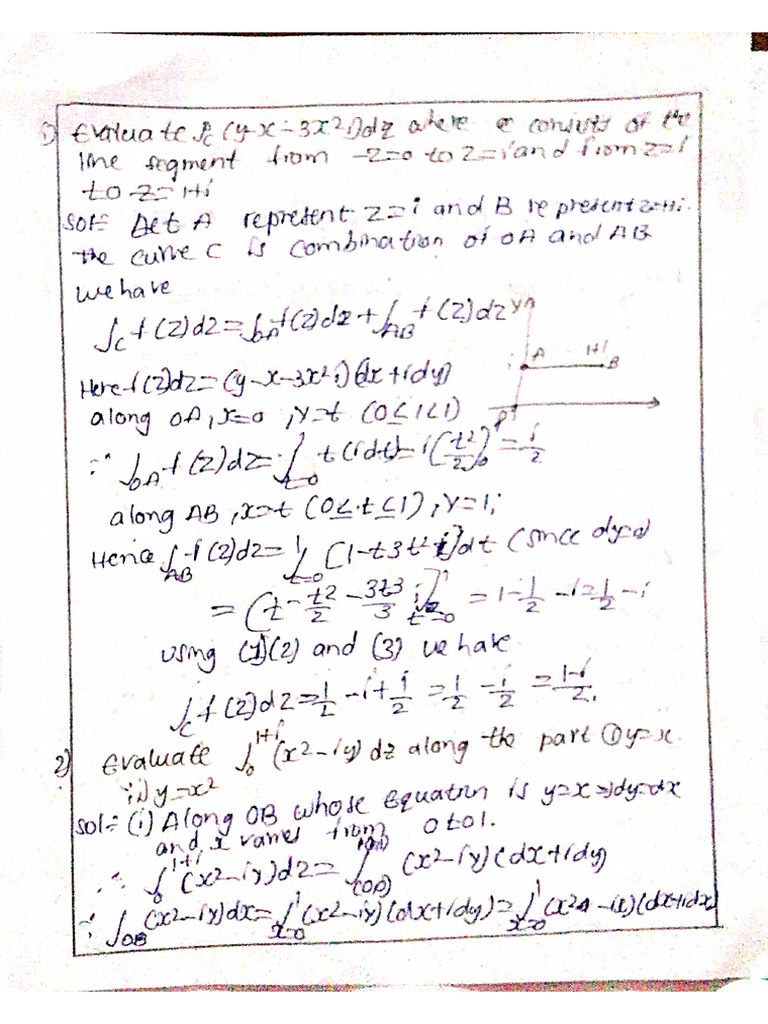 1) Evaluate ∫c (y-x-3x²i)dz where c consists of the
line segment from z=0 to z=i and from z=i
to z=1+i
Sol= Let A represent z=i and B represent z=1+i.
the curve C is combination of OA and AB
we have
∫c f(z)dz=∫OA f(z)dz+∫AB f(z)dz
Y
i A 1+i B
Here f(z)dz=(y-x-3x²i)(dx+idy)
along OA, x=0, y=t (0≤t≤1)
∵ ∫OA f(z)dz=∫t=0 t(idt)=i(t²/2)₀¹=i/2
along AB, x=t (0≤t≤1), y=1;
Hence ∫AB f(z)dz=∫¹t=0 [1-t3t²i]dt (since dy=0)
=(t-t²/2-3t3/3 i]¹t=0 =1-1/2-i=1/2-i
using (1)(2) and (3) we have
∫c f(z)dz=1/2-i+i/2=1/2-i/2=1-i/2.
2) Evaluate ∫₀¹⁺ⁱ(x²-iy)dz along the part ① y=x
ii) y=x²
Sol= (i) Along OB whose equation is y=x⇒dy=dx
and x varies from 0 to 1.
∴ ∫₀¹⁺ⁱ(x²-iy)dz=∫ (x²-iy)(dx+idy)
∵ ∫OB (x²-iy)dx=∫¹x=0 (x²-iy)(dx+idy)=∫¹x=0 (x² -ix)(dx+idx)